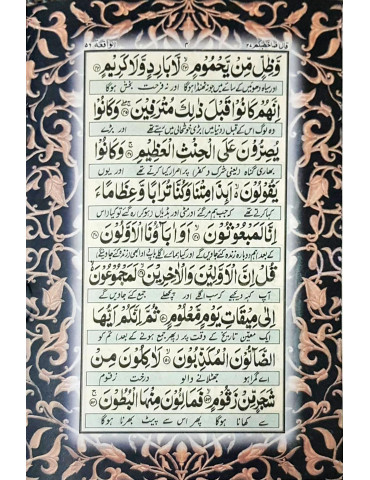 قال فما خطبكم ٢٧
٣
الواقعة ٥٦
وَّظِلٍّ مِّنْ يَّحْمُوْمٍ لَّا بَارِدٍ وَّلَا كَرِيْمٍ
اور سیاہ دھوئیں کے سائے میں جو نہ ٹھنڈا ہوگا اور نہ فرحت بخش ہوگا
اِنَّهُمْ كَانُوْا قَبْلَ ذٰلِكَ مُتْرَفِيْنَ وَكَانُوْا
وہ لوگ اس کے قبل (دنیا میں) بڑی خوشحالی میں رہتے تھے اور بڑے
يُصِرُّوْنَ عَلَى الْحِنْثِ الْعَظِيْمِ وَكَانُوْا
بھاری گناہ (یعنی شرک و کفر) پر اصرار کیا کرتے تھے اور یوں
يَقُوْلُوْنَ اَىِٕذَا مِتْنَا وَكُنَّا تُرَابًا وَّعِظَامًا ءَ
کہا کرتے تھے کہ جب ہم مر گئے اور مٹی اور ہڈیاں ہو کر رہ گئے تو کیا اس
اِنَّا لَمَبْعُوْثُوْنَ اَوَاٰبَآؤُنَا الْاَوَّلُوْنَ
کے بعد ہم دوبارہ زندہ کئے جاویں گے اور کیا ہمارے اگلے باپ دادا بھی زندہ کئے جاویں گے
قُلْ اِنَّ الْاَوَّلِيْنَ وَالْاٰخِرِيْنَ لَمَجْمُوْعُوْنَ
آپ کہہ دیجئے کہ سب اگلے اور پچھلے جمع کئے جاویں گے
اِلٰى مِيْقَاتِ يَوْمٍ مَّعْلُوْمٍ ثُمَّ اِنَّكُمْ اَيُّهَا
ایک معین تاریخ کے وقت پر پھر (جمع ہونے کے بعد) تم کو
الضَّآلُّوْنَ الْمُكَذِّبُوْنَ لَاٰكِلُوْنَ مِنْ
اے گمراہو جھٹلانے والو درخت زقوم
شَجَرٍ مِّنْ زَقُّوْمٍ فَمَالِـُٔوْنَ مِنْهَا الْبُطُوْنَ
سے کھانا ہوگا پھر اس سے پیٹ بھرنا ہوگا